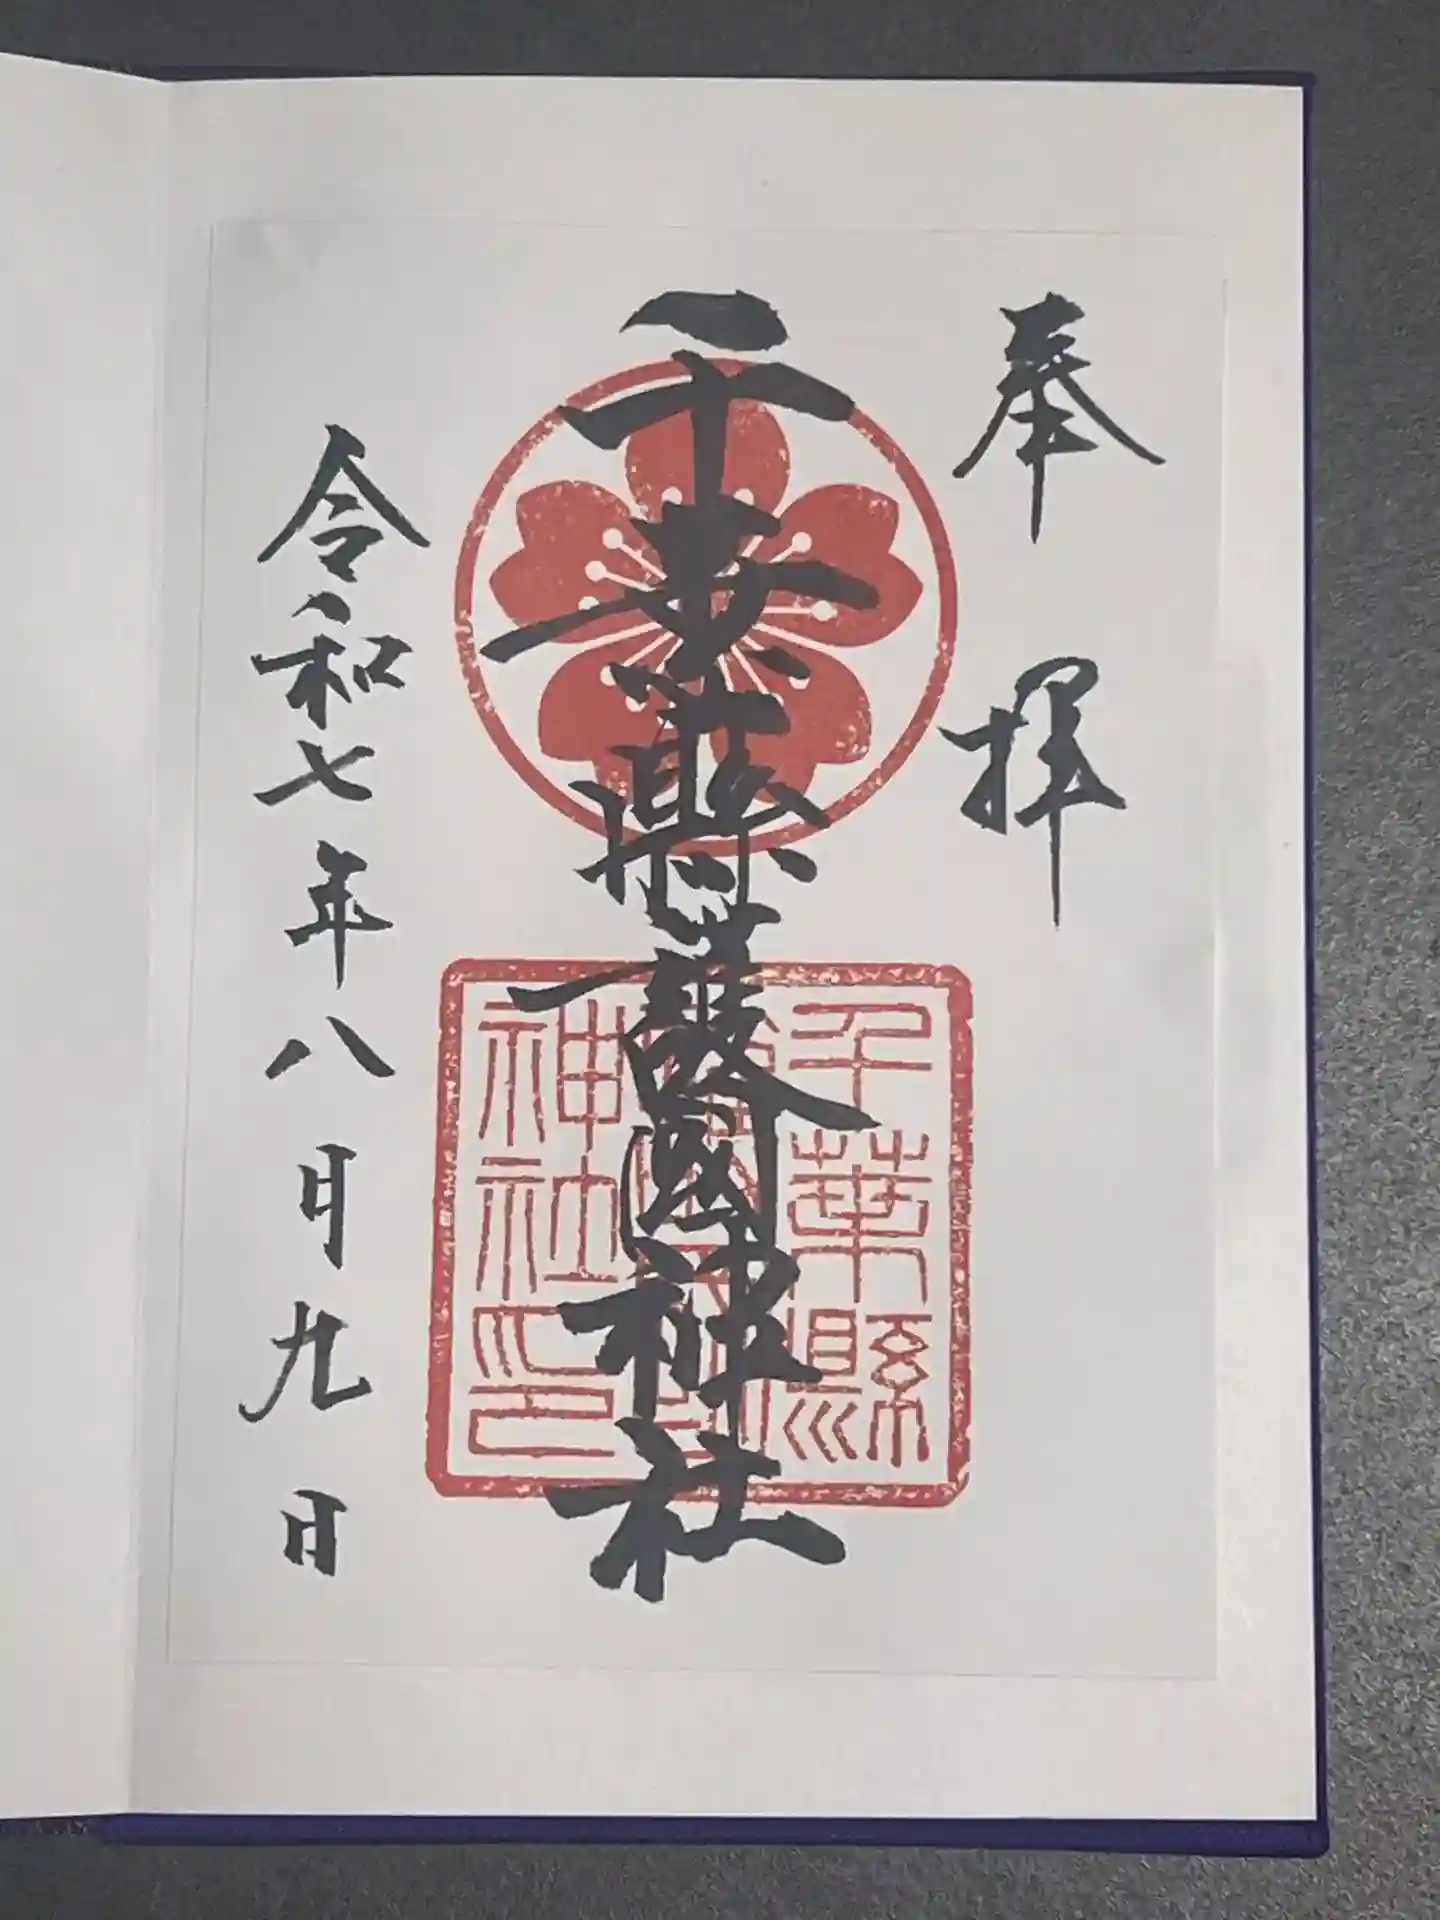 奉拝
千葉縣護國神社
千葉縣
神社印
令和七年八月九日